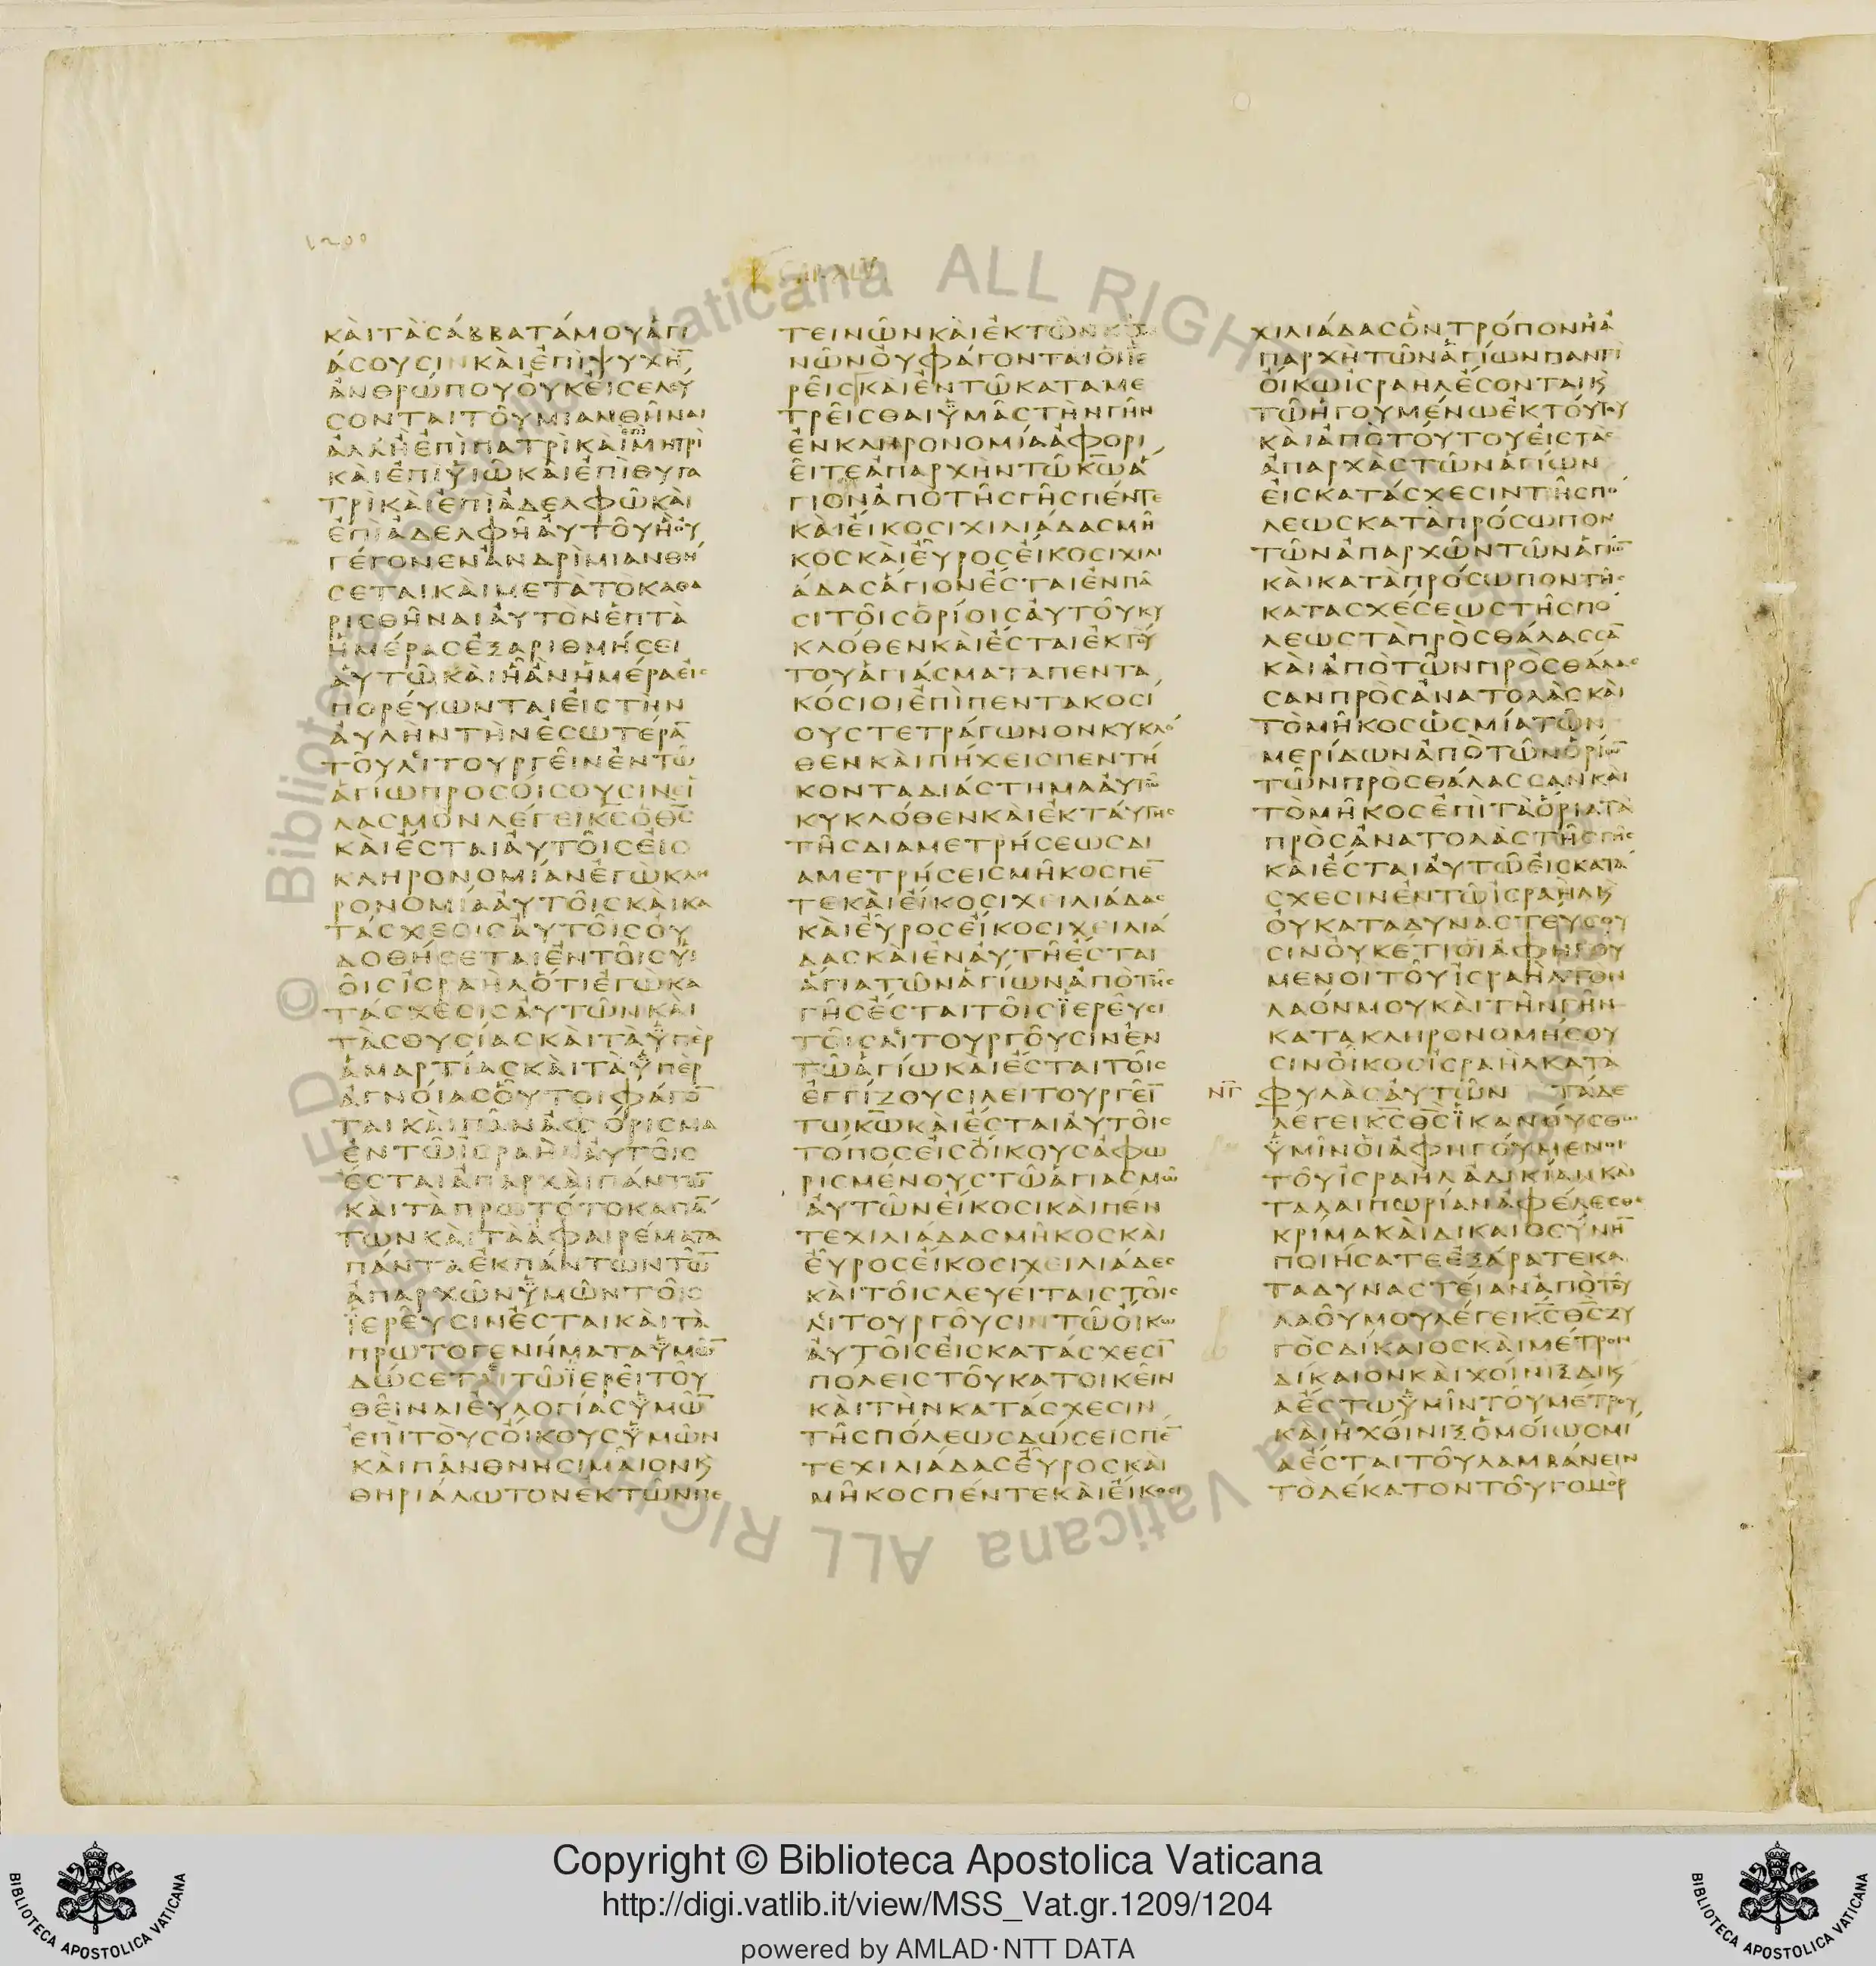 1200
CAP. XLV.
ΚΑΙΤΑΣΑΒΒΑΤΑΜΟΥΑΓΙ
ΑΣΟΥΣΙΝΚΑΙΕΠΙΨΥΧΗ̅
ΑΝΘΡΩΠΟΥΟΥΚΕΙΣΕΛΕΥ
ΣΟΝΤΑΙΤΟΥΜΙΑΝΘΗΝΑΙ
ΑΛΛΗΕΠΙΠΑΤΡΙΚΑΙΕΠΙΜΗΤΡΙ
ΚΑΙΕΠΙΥΙΩΚΑΙΕΠΙΘΥΓΑ
ΤΡΙΚΑΙΕΠΙΑΔΕΛΦΩΚΑΙ
ΕΠΙΑΔΕΛΦΗΑΥΤΟΥΗΟΥ
ΓΕΓΟΝΕΝΑΝΔΡΙΜΙΑΝΘΗ
ΣΕΤΑΙΚΑΙΜΕΤΑΤΟΚΑΘΑ
ΡΙΣΘΗΝΑΙΑΥΤΟΝΕΠΤΑ
ΗΜΕΡΑΣΕΞΑΡΙΘΜΗΣΕΙ
ΑΥΤΩΚΑΙΗΑΝΗΜΕΡΑΕΙΣ
ΠΟΡΕΥΩΝΤΑΙΕΙΣΤΗΝ
ΑΥΛΗΝΤΗΝΕΣΩΤΕΡΑ̅
ΤΟΥΛΙΤΟΥΡΓΕΙΝΕΝΤΩ
ΑΓΙΩΠΡΟΣΟΙΣΟΥΣΙΝΕΙ
ΛΑΣΜΟΝΛΕΓΕΙΚ̅Σ̅ΟΘ̅Σ̅
ΚΑΙΕΣΤΑΙΑΥΤΟΙΣΕΙΣ
ΚΛΗΡΟΝΟΜΙΑΝΕΓΩΚΛΗ
ΡΟΝΟΜΙΑΑΥΤΟΙΣΚΑΙΚΑ
ΤΑΣΧΕΣΙΣΑΥΤΟΙΣΟΥ
ΔΟΘΗΣΕΤΑΙΕΝΤΟΙΣΥΙ
ΟΙΣΙΣΡΑΗΛΟΤΙΕΓΩΚΑ
ΤΑΣΧΕΣΙΣΑΥΤΩΝΚΑΙ
ΤΑΣΘΥΣΙΑΣΚΑΙΤΑΥΠΕΡ
ΑΜΑΡΤΙΑΣΚΑΙΤΑΥΠΕΡ
ΑΓΝΟΙΑΣΟΥΤΟΙΦΑΓΟ̅
ΤΑΙΚΑΙΠΑΝΑΦΟΡΙΣΜΑ
ΕΝΤΩΙΣΡΑΗΛΑΥΤΟΙΣ
ΕΣΤΑΙΑΠΑΡΧΑΙΠΑΝΤΩ̅
ΚΑΙΤΑΠΡΩΤΟΤΟΚΑΠΑ̅
ΤΩΝΚΑΙΤΑΑΦΑΙΡΕΜΑΤΑ
ΠΑΝΤΑΕΚΠΑΝΤΩΝΤΩ̅
ΑΠΑΡΧΩΝΥΜΩΝΤΟΙΣ
ΙΕΡΕΥΣΙΝΕΣΤΑΙΚΑΙΤΑ
ΠΡΩΤΟΓΕΝΗΜΑΤΑΥΜΩ̅
ΔΩΣΕΤΑΙΤΩΙΕΡΕΙΤΟΥ
ΘΕΙΝΑΙΕΥΛΟΓΙΑΣΥΜΩ̅
ΕΠΙΤΟΥΣΟΙΚΟΥΣΥΜΩΝ
ΚΑΙΠΑΝΘΝΗΣΙΜΑΙΟΝϏ
ΘΗΡΙΑΛΩΤΟΝΕΚΤΩΝΠΕ
ΤΕΙΝΩΝΚΑΙΕΚΤΩΝΚΤΗ
ΝΩΝΟΥΦΑΓΟΝΤΑΙΟΙΙΕ
ΡΕΙΣΚΑΙΕΝΤΩΚΑΤΑΜΕ
ΤΡΕΙΣΘΑΙΥΜΑΣΤΗΝΓΗΝ
ΕΝΚΛΗΡΟΝΟΜΙΑΑΦΟΡΙ
ΕΙΤΕΑΠΑΡΧΗΝΤΩΚ̅Ω̅Α
ΓΙΟΝΑΠΟΤΗΣΓΗΣΠΕΝΤΕ
ΚΑΙΕΙΚΟΣΙΧΙΛΙΑΔΑΣΜΗ
ΚΟΣΚΑΙΕΥΡΟΣΕΙΚΟΣΙΧΙΛΙ
ΑΔΑΣΑΓΙΟΝΕΣΤΑΙΕΝΠΑ
ΣΙΤΟΙΣΟΡΙΟΙΣΑΥΤΟΥΚΥ
ΚΛΟΘΕΝΚΑΙΕΣΤΑΙΕΚΤΟΥ
ΤΟΥΑΓΙΑΣΜΑΤΑΠΕΝΤΑ
ΚΟΣΙΟΙΕΠΙΠΕΝΤΑΚΟΣΙ
ΟΥΣΤΕΤΡΑΓΩΝΟΝΚΥΚΛΟ
ΘΕΝΚΑΙΠΗΧΕΙΣΠΕΝΤΗ
ΚΟΝΤΑΔΙΑΣΤΗΜΑΑΥΤΩ
ΚΥΚΛΟΘΕΝΚΑΙΕΚΤΑΥΤΗΣ
ΤΗΣΔΙΑΜΕΤΡΗΣΕΩΣΔΙ
ΑΜΕΤΡΗΣΕΙΣΜΗΚΟΣΠΕ̅
ΤΕΚΑΙΕΙΚΟΣΙΧΕΙΛΙΑΔΑΣ
ΚΑΙΕΥΡΟΣΕΙΚΟΣΙΧΕΙΛΙΑ
ΔΑΣΚΑΙΕΝΑΥΤΗΕΣΤΑΙ
ΑΓΙΑΤΩΝΑΓΙΩΝΑΠΟΤΗΣ
ΓΗΣΕΣΤΑΙΤΟΙΣΙΕΡΕΥΣΙ
ΤΟΙΣΛΙΤΟΥΡΓΟΥΣΙΝΕΝ
ΤΩΑΓΙΩΚΑΙΕΣΤΑΙΤΟΙΣ
ΕΓΓΙΖΟΥΣΙΛΕΙΤΟΥΡΓΕΙ̅
ΤΩΚ̅Ω̅ΚΑΙΕΣΤΑΙΑΥΤΟΙΣ
ΤΟΠΟΣΕΙΣΟΙΚΟΥΣΑΦΩ
ΡΙΣΜΕΝΟΥΣΤΩΑΓΙΑΣΜΩ
ΑΥΤΩΝΕΙΚΟΣΙΚΑΙΠΕΝ
ΤΕΧΙΛΙΑΔΑΣΜΗΚΟΣΚΑΙ
ΕΥΡΟΣΕΙΚΟΣΙΧΕΙΛΙΑΔΕΣ
ΚΑΙΤΟΙΣΛΕΥΕΙΤΑΙΣΤΟΙΣ
ΛΙΤΟΥΡΓΟΥΣΙΝΤΩΟΙΚΩ
ΑΥΤΟΙΣΕΙΣΚΑΤΑΣΧΕΣΙ̅
ΠΟΛΕΙΣΤΟΥΚΑΤΟΙΚΕΙΝ
ΚΑΙΤΗΝΚΑΤΑΣΧΕΣΙΝ
ΤΗΣΠΟΛΕΩΣΔΩΣΕΙΣΠΕ̅
ΤΕΧΙΛΙΑΔΑΣΕΥΡΟΣΚΑΙ
ΜΗΚΟΣΠΕΝΤΕΚΑΙΕΙΚΟΣΙ
ΧΙΛΙΑΔΑΣΟΝΤΡΟΠΟΝΗΑ
ΠΑΡΧΗΤΩΝΑΓΙΩΝΠΑΝΤΙ
ΟΙΚΩΙΣΡΑΗΛΕΣΟΝΤΑΙϏ
ΤΩΗΓΟΥΜΕΝΩΕΚΤΟΥΤΟΥ
ΚΑΙΑΠΟΤΟΥΤΟΥΕΙΣΤΑΣ
ΑΠΑΡΧΑΣΤΩΝΑΓΙΩΝ
ΕΙΣΚΑΤΑΣΧΕΣΙΝΤΗΣΠΟ
ΛΕΩΣΚΑΤΑΠΡΟΣΩΠΟΝ
ΤΩΝΑΠΑΡΧΩΝΤΩΝΑΓΙΩ̅
ΚΑΙΚΑΤΑΠΡΟΣΩΠΟΝΤΗΣ
ΚΑΤΑΣΧΕΣΕΩΣΤΗΣΠΟ
ΛΕΩΣΤΑΠΡΟΣΘΑΛΑΣΣΑ̅
ΚΑΙΑΠΟΤΩΝΠΡΟΣΘΑΛΑΣ
ΣΑΝΠΡΟΣΑΝΑΤΟΛΑΣΚΑΙ
ΤΟΜΗΚΟΣΩΣΜΙΑΤΩΝ
ΜΕΡΙΔΩΝΑΠΟΤΩΝΟΡΙΩ̅
ΤΩΝΠΡΟΣΘΑΛΑΣΣΑΝΚΑΙ
ΤΟΜΗΚΟΣΕΠΙΤΑΟΡΙΑΤΑ
ΠΡΟΣΑΝΑΤΟΛΑΣΤΗΣΓΗΣ
ΚΑΙΕΣΤΑΙΑΥΤΩΕΙΣΚΑΤΑ
ΣΧΕΣΙΝΕΝΤΩΙΣΡΑΗΛϏ
ΟΥΚΑΤΑΔΥΝΑΣΤΕΥΣΟΥ
ΣΙΝΟΥΚΕΤΙΟΙΑΦΗΓΟΥ
ΜΕΝΟΙΤΟΥΙΣΡΑΗΛΤΟΝ
ΛΑΟΝΜΟΥΚΑΙΤΗΝΓΗΝ
ΚΑΤΑΚΛΗΡΟΝΟΜΗΣΟΥ
ΣΙΝΟΙΚΟΣΙΣΡΑΗΛΚΑΤΑ
ΝΓ̅ ΦΥΛΑΣΑΥΤΩΝ ΤΑΔΕ
ΛΕΓΕΙΚ̅Σ̅Θ̅Σ̅ΙΚΑΝΟΥΣΘΩ
ΥΜΙΝΟΙΑΦΗΓΟΥΜΕΝΟΙ
ΤΟΥΙΣΡΑΗΛΑΔΙΚΙΑΝΚΑΙ
ΤΑΛΑΙΠΩΡΙΑΝΑΦΕΛΕΣΘΑΙ
ΚΡΙΜΑΚΑΙΔΙΚΑΙΟΣΥΝΗ̅
ΠΟΙΗΣΑΤΕΕΞΑΡΑΤΕΚΑ
ΤΑΔΥΝΑΣΤΕΙΑΝΑΠΟΤΟΥ
ΛΑΟΥΜΟΥΛΕΓΕΙΚ̅Σ̅Θ̅Σ̅ΖΥ
ΓΟΣΔΙΚΑΙΟΣΚΑΙΜΕΤΡΟΝ
ΔΙΚΑΙΟΝΚΑΙΧΟΙΝΙΞΔΙΚ
ΑΕΣΤΩΥΜΙΝΤΟΥΜΕΤΡΟΥ
ΚΑΙΗΧΟΙΝΙΞΟΜΟΙΩΣΜΙ
ΑΕΣΤΑΙΤΟΥΛΑΜΒΑΝΕΙΝ
ΤΟΔΕΚΑΤΟΝΤΟΥΓΟΜΟΡ
Copyright © Biblioteca Apostolica Vaticana
http://digi.vatlib.it/view/MSS_Vat.gr.1209/1204
powered by AMLAD·NTT DATA
BIBLIOTECA APOSTOLICA VATICANA
BIBLIOTECA APOSTOLICA VATICANA